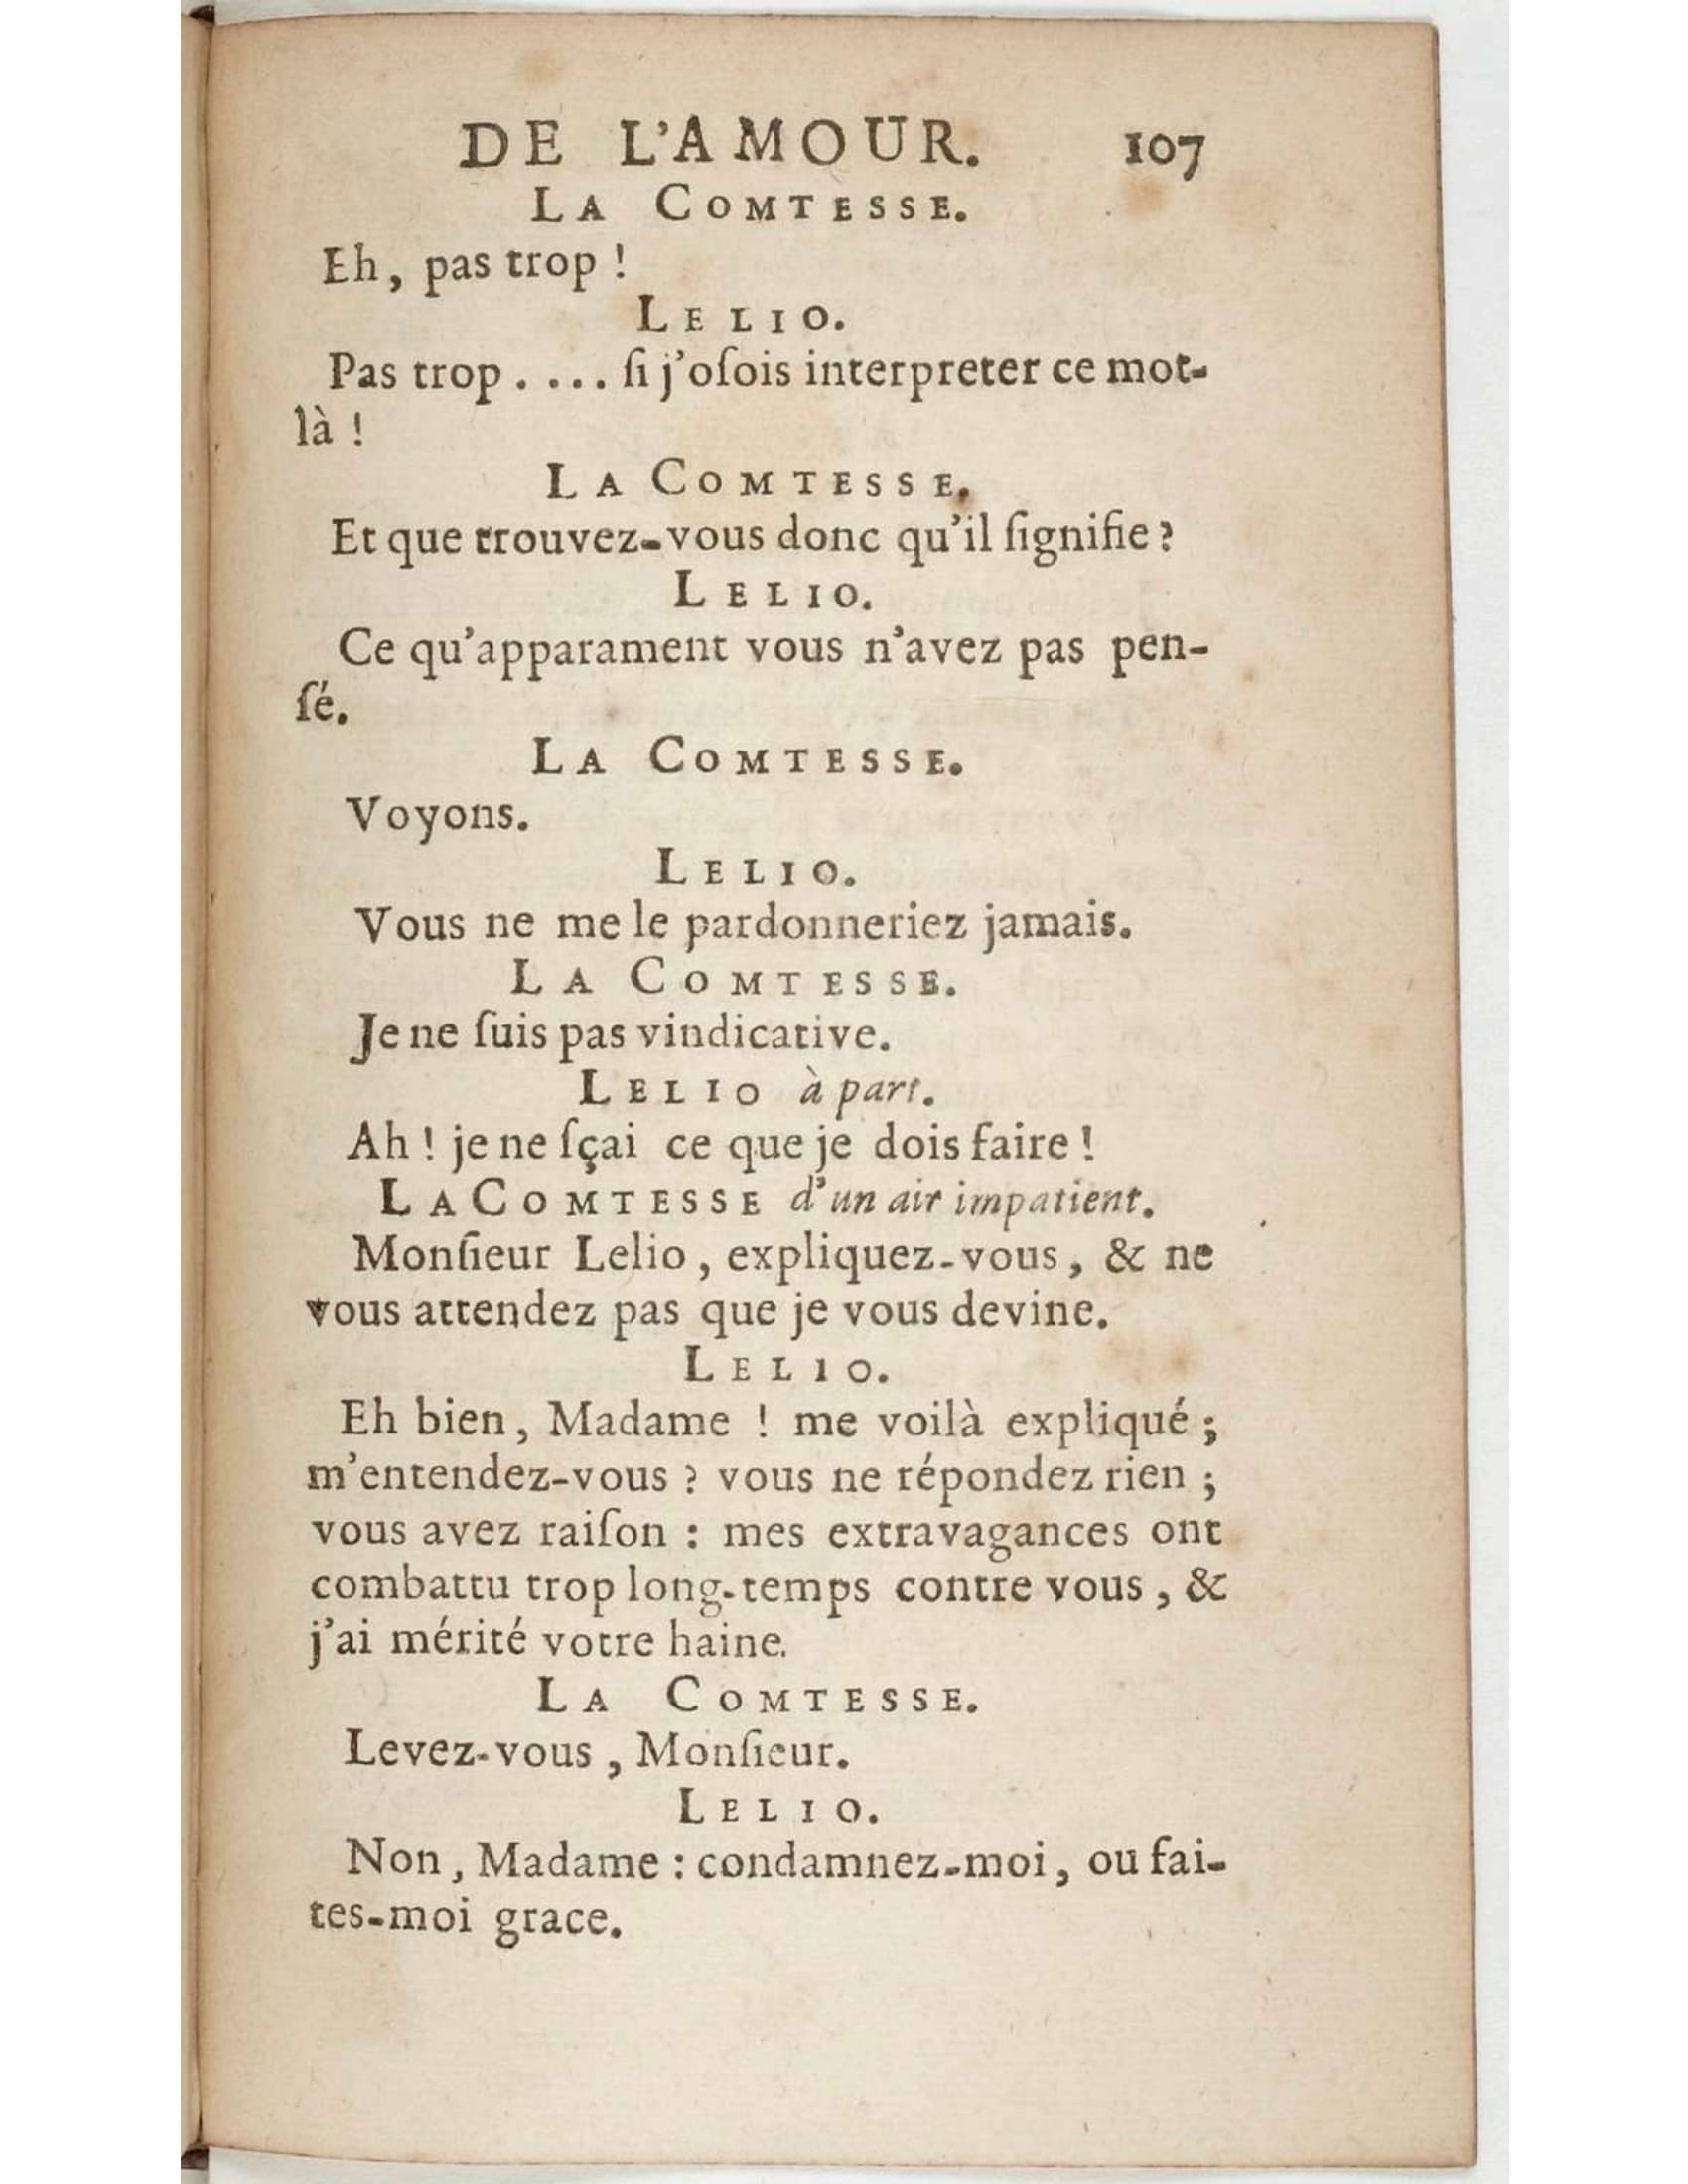 DE L'AMOUR. 107
LA COMTESSE.
Eh, pas trop !
LELIO.
Pas trop..... ſi j'oſois interpreter ce mot-
là !
LA COMTESSE.
Et que trouvez-vous donc qu'il ſignifie ?
LELIO.
Ce qu'apparament vous n'avez pas pen-
ſé.
LA COMTESSE.
Voyons.
LELIO.
Vous ne me le pardonneriez jamais.
LA COMTESSE.
Je ne ſuis pas vindicative.
LELIO à part.
Ah ! je ne ſçai ce que je dois faire !
LA COMTESSE d'un air impatient.
Monſieur Lelio, expliquez-vous, & ne
vous attendez pas que je vous devine.
LELIO.
Eh bien, Madame ! me voilà expliqué ;
m'entendez-vous ? vous ne répondez rien ;
vous avez raiſon : mes extravagances ont
combattu trop long-temps contre vous, &
j'ai mérité votre haine.
LA COMTESSE.
Levez-vous, Monſieur.
LELIO.
Non, Madame : condamnez-moi, ou fai-
tes-moi grace.